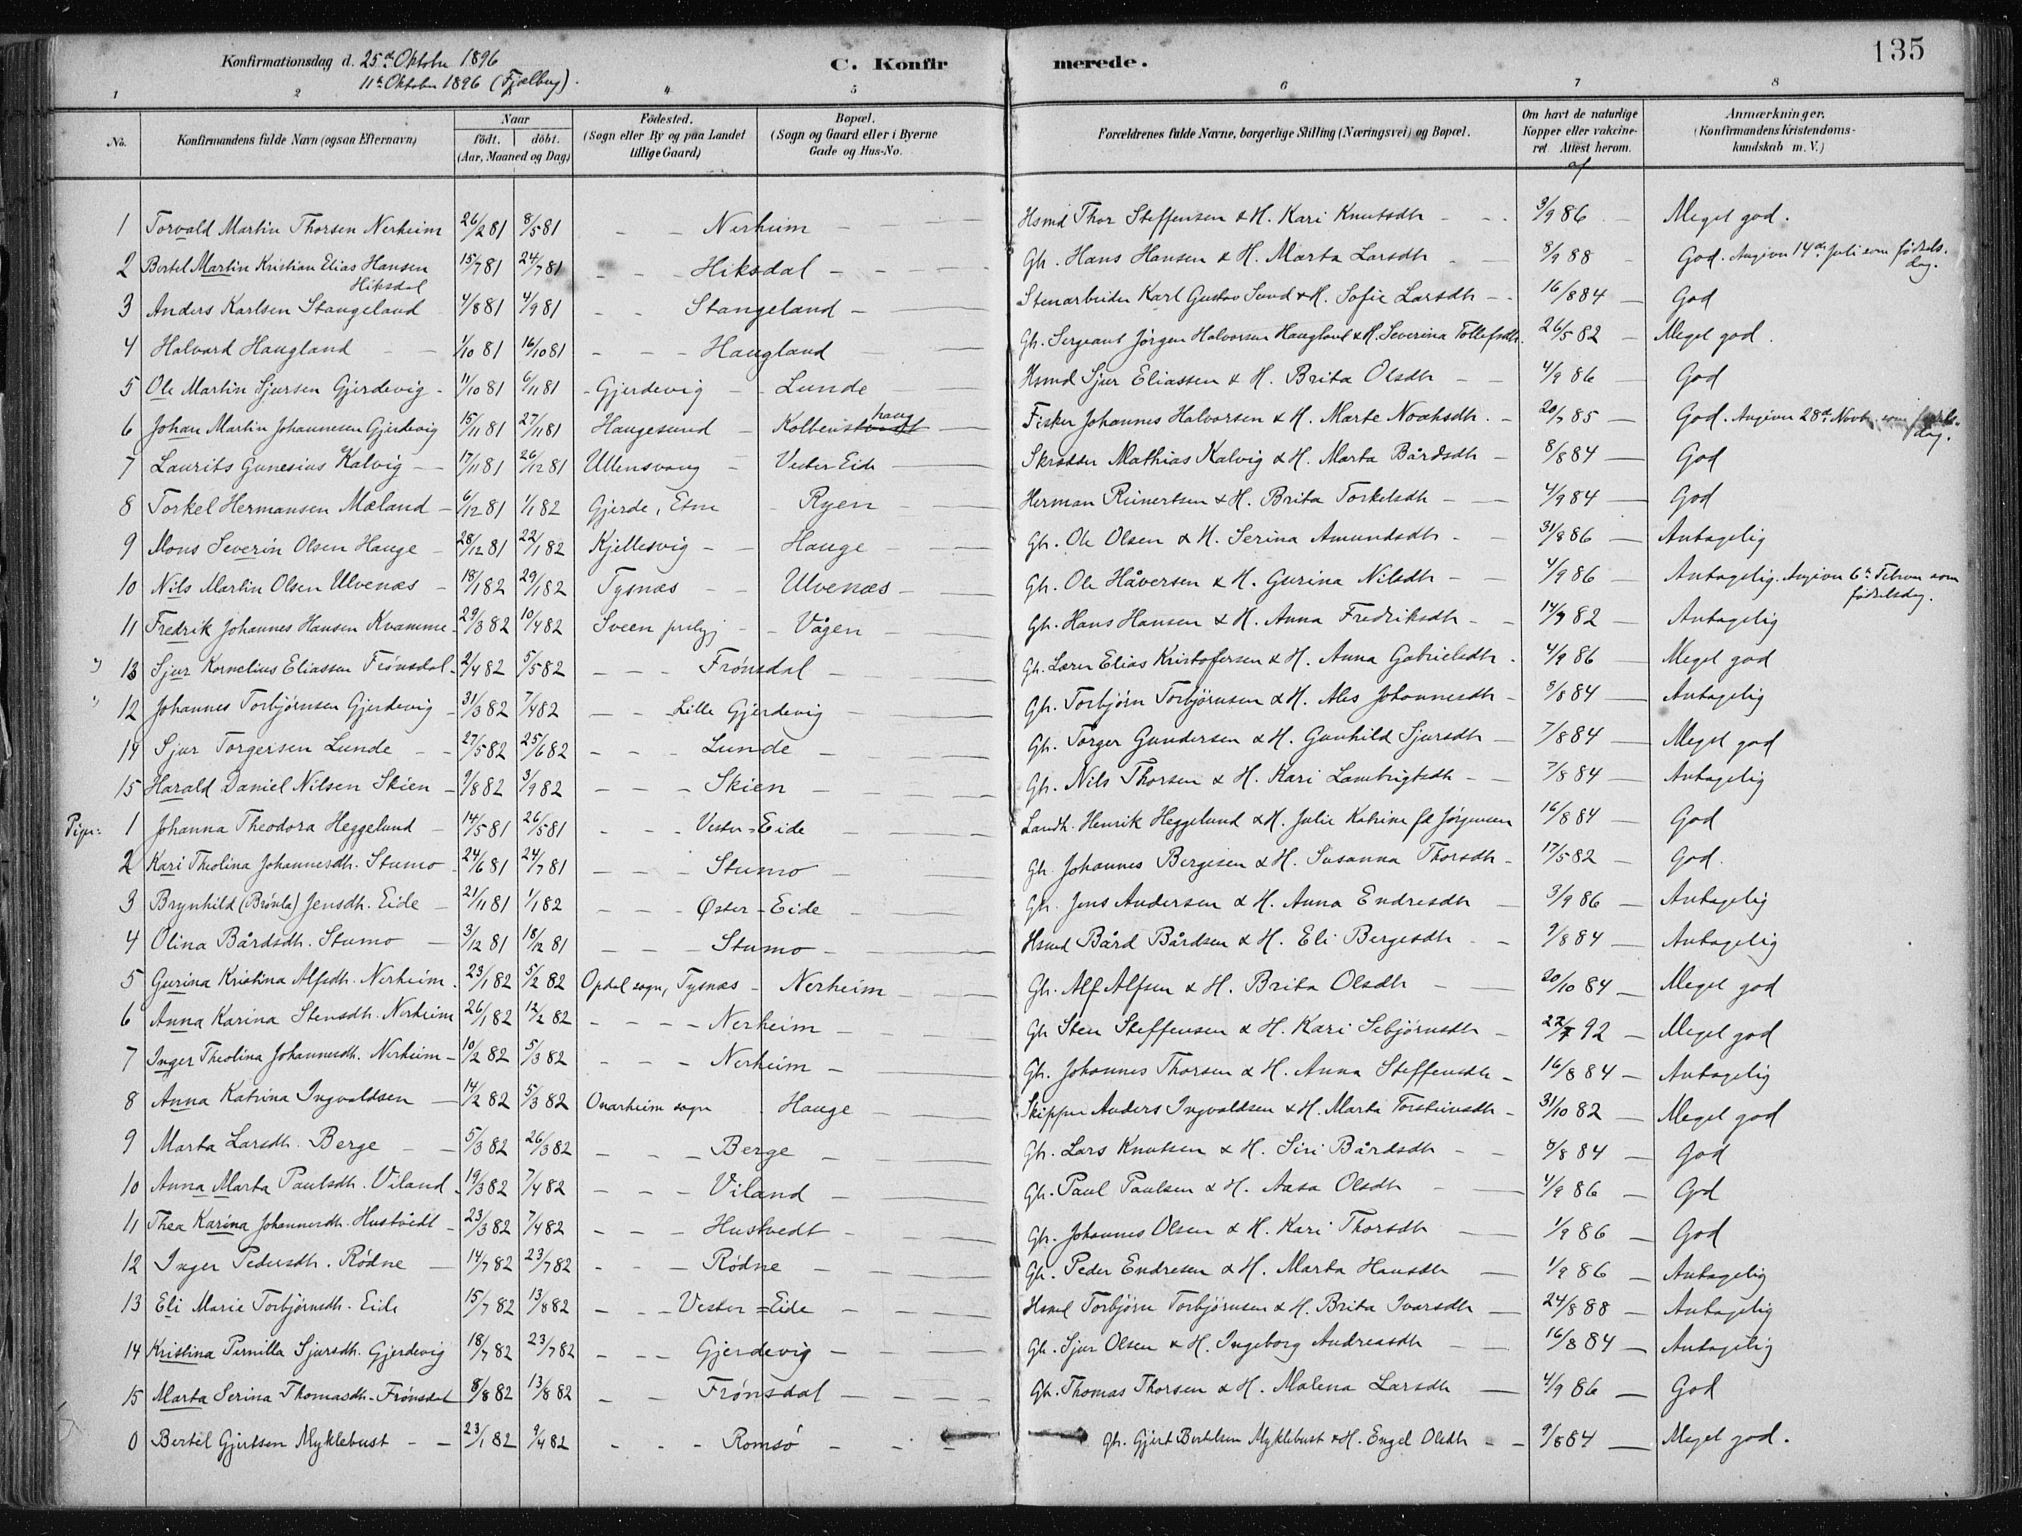 135
Konfirmationsdag d. 25de Oktober 1896
11te Oktober 1896 (Fjelberg).
C. Konfirmerede.
1 2 4 5 6 7 8
No. Konfirmandens fulde Navn (ogsaa Efternavn) Naar födt. döbt. (Aar, Maaned og Dag) Födested. (Sogn eller By og paa Landet tillige Gaard) Bopæl. (Sogn og Gaard eller i Byerne Gade og Hus-No. Forældrenes fulde Navne, borgerlige Stilling (Næringsvei) og Bopæl. Om havt de naturlige Kopper eller vakcineret. Attest herom. af Anmærkninger. (Konfirmandens Kristendomskundskab m. V.)
1 Torvald Martin Thorsen Nerheim 26/2 81 8/5 81 - - Nerheim - - Hsmd Thor Steffensen & H. Kari Knutsdtr - - 3/9 86 - Meget god.
2 Bertel Martin Kristian Elias Hansen Hiksdal 15/7 81 24/7 81 - - - Hiksdal - - Gbr. Hans Hansen & H. Marta Larsdtr - 8/9 88 - God. Angiver 14de Juli som fødselsdag.
3 Anders Karlsen Stangeland 4/8 81 4/9 81 - - Stangeland - Stenarbeider Karl Gustav Sund & H. Sofie Larsdtr - - 16/8 84 - God
4 Halvard Haugland - - 1/10 81 16/10 81 - - - Haugland Gbr. Sergeant Jørgen Halvorsen Haugland & H. Severina Tollefsdtr. 26/5 82 - Meget god.
5 Ole Martin Sjursen Gjerdevig - 11/10 81 6/11 81 - Gjerdevig - Lunde Hsmd Sjur Eliassen & H. Brita Olsdtr - - 4/9 86 - God
6 Johan Martin Johannesen Gjerdevig 15/11 81 27/11 81 Haugesund - Kolbenshaug Fisker Johannes Halvorsen & H. Marte Noahsdtr. - 20/7 85 - God. Angiver 28de Novbr. som fødselsdag.
7 Laurits Gunesius Kalvig - - 17/11 81 26/12 81 Ullensvang - Vester Eide - Skrædder Mathias Kalvig & H. Marta Bårdsdtr - 8/8 84 - God
8 Torkel Hermansen Mæland - 6/12 81 1/1 82 Gjerde, Etne - Ryen - Herman Reinertsen & H. Brita Torkelsdtr - - 4/9 84 - God
9 Mons Severin Olsen Hauge - 28/12 81 22/1 82 Kjellesvig - - Hauge - Gbr. Ole Olsen & H. Serina Amundsdtr - - 31/8 86 - Antagelig
10 Nils Martin Olsen Ulvenæs - 18/1 82 29/1 82 Tysnæs - Ulvenæs - Gbr. Ole Håversen & H. Gurina Nilsdtr - - 4/9 86 - Antagelig. Angiver 6te Februar som fødselsdag.
11 Fredrik Johannes Hansen Kvamme - 29/3 82 10/4 82 Sveen prstgj - - Vågen - Gbr. Hans Hansen & H. Anna Fredriksdtr - - 14/9 82 - Antagelig
13 Sjur Kornelius Eliassen Frönsdal - 2/4 82 5/5 82 - - - Frönsdal - Gbr. Lærer Elias Kristofersen & H. Anna Gabrielsdtr - 4/9 86 - Meget god
12 Johannes Torbjörnsen Gjerdevig - 31/3 82 7/4 82 - - Lille Gjerdevig - Gbr. Torbjörn Torbjörnsen & H. Ales Johannesdtr - 8/8 84 - Antagelig
14 Sjur Torgersen Lunde - - 27/5 82 25/6 82 - - - Lunde - Gbr. Torger Gundersen & H. Gunhild Sjursdtr - 7/8 84 - Meget god
15 Harald Daniel Nilsen Skien - 9/8 82 3/9 82 - - - Skien - Gbr. Nils Thorsen & H. Kari Lambrigtsdtr - - 7/8 84 - Antagelig
Piger: 1 Johanna Theodora Heggelund - 14/5 81 26/5 81 - - Vester=Eide - Landh. Henrik Heggelund & H. Julie Katrine fd Jørgensen 16/8 84 - God
2 Kari Theolina Johannesdtr. Stumo - 24/6 81 24/7 81 - - - Stumo - Gbr. Johannes Bergesen & H. Susanna Thorsdtr - 17/5 82 - God.
3 Brynhild (Brönla) Jensdtr. Eide - 21/11 81 1/1 82 - - - Öster-Eide - Gbr. Jens Andersen & H. Anna Endresdtr - 3/9 86 - Antagelig
4 Olina Bårdsdtr. Stumo - 3/12 81 18/12 81 - - - Stumo - Hsmd Bård Bårdsen & H. Eli Bergesdtr - - 9/8 84 - Antagelig
5 Gurina Kristina Alfsdtr. Nerheim - 23/1 82 5/2 82 Opdal sogn, Tysnæs - Nerheim - Gbr. Alf Alfsen & H. Brita Olsdtr - - 20/10 84 - Meget god
6 Anna Karina Stensdtr. Nerheim 26/1 82 12/2 82 - - - - Nerheim - Gbr Sten Steffensen & H. Kari Sebjörnsdtr - 22/7 92 - Meget god
7 Inger Theolina Johannesdtr. Nerheim - 10/2 82 5/3 82 - - - Nerheim - Gbr. Johannes Thorsen & H. Anna Steffensdtr - 16/8 84 - Antagelig
8 Anna Katrina Ingvaldsen - 14/2 82 5/3 82 Onarheim sogn Hauge - Skipper Anders Ingvaldsen & H. Marta Torsteinsdtr - 31/10 82 - Meget god
9 Marta Larsdtr. Berge - - 5/3 82 26/3 82 - - - Berge - Gbr. Lars Knutsen & H. Siri Bårdsdtr - - 8/8 84 - God
10 Anna Marta Paulsdtr. Viland - 19/3 82 7/4 82 - - - Viland - Gbr. Paul Paulsen & H. Aasa Olsdtr - 4/9 86 - God
11 Thea Karina Johannesdtr. Hustvedt - 23/3 82 7/4 82 - - - Hustvedt - Gbr. Johannes Olsen & H. Kari Thorsdtr - 1/9 86 - God
12 Inger Pedersdtr. Rödne - 14/7 82 23/7 82 - - - Rödne - Gbr. Peder Endresen & H. Marta Hansdtr - 1/9 86 - Antagelig
13 Eli Marie Torbjörnsdtr. Eide 15/7 82 13/8 82 - - Vester=Eide - Hsmd Torbjörn Torbjörnsen & H. Brita Ivarsdtr - 24/8 88 - Antagelig
14 Kristina Pernilla Sjursdtr. Gjerdevig 18/7 82 23/7 82 - - - Gjerdevig - Gbr. Sjur Olsen & H. Ingeborg Andreasdtr - 16/8 84 - Antagelig
15 Marta Serina Thomasdtr. Frönsdal 8/8 82 13/8 82 - - Frönsdal - Gbr. Thomas Thorsen & H. Malena Larsdtr - 4/9 86 - God
0 Bertel Gjertsen Myklebust - - 23/1 82 9/4 82 - - - Romsö - Gbr. Gjert Bertelsen Myklebust & H. Engel Olsdtr - - 9/8 84 - Meget god.